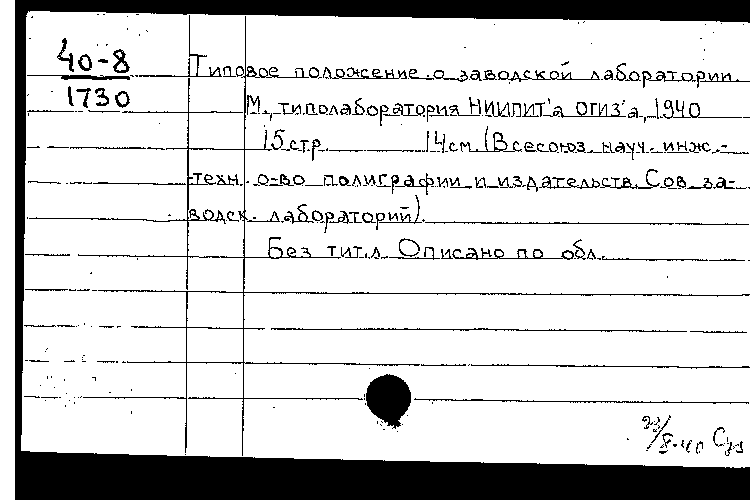 40-8
1730
Типовое положение о заводской лаборатории.
М., типолаборатория НИИПИТ'а ОГИЗ'а, 1940
15 стр. 14 см. (Всесоюз. науч.-инж.-
-техн. о-во полиграфии и издательств. Сов. за-
водск. лабораторий).
Без тит. л. Описано по обл.
22/8-40